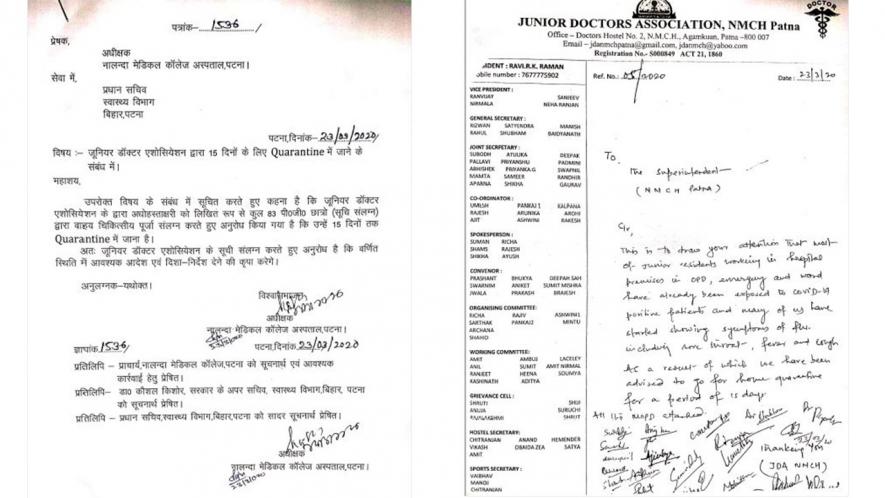 पत्रांक- 1536/
प्रेषक,
अधीक्षक
नालन्दा मेडिकल कॉलेज अस्पताल,पटना।
सेवा में,
प्रधान सचिव
स्वास्थ्य विभाग
बिहार,पटना
पटना,दिनांक- 23/03/2020
विषय :- जूनियर डॉक्टर एशोसियेशन द्वारा 15 दिनों के लिए Quarantine में जाने के
संबंध में।
महाशय,
उपरोक्त विषय के संबंध में सूचित करते हुए कहना है कि जूनियर डॉक्टर
एशोसियेशन के द्वारा अधोहस्ताक्षरी को लिखित रूप से कुल 83 पी०जी० छात्रो (सूचि संलग्न)
द्वारा वाहय चिकित्सीय पूर्जा संलग्न करते हुए अनुरोध किया गया है कि उन्हें 15 दिनों तक
Quarantine में जाना है।
अतः जूनियर डॉक्टर एशोसियेशन के सूची संलग्न करते हुए अनुरोध है कि वर्णित
स्थिति में आवश्यक आदेश एवं दिशा-निर्देश देने की कृपा करेगें।
अनुलग्नक-यथोक्त।
अधीक्षक
नालन्दा मेडिकल कॉलेज अस्पताल,पटना।
ज्ञापांक 1536/ पटना,दिनांक 23/03/2020
प्रतिलिपि – प्राचार्य,नालन्दा मेडिकल कॉलेज,पटना को सूचनार्थ एवं आवश्यक
कार्रवाई हेतु प्रेषित।
प्रतिलिपि – डा० कौशल किशोर, सरकार के अपर सचिव, स्वास्थ्य विभाग,बिहार, पटना
को सूचनार्थ प्रेषित।
प्रतिलिपि – प्रधान सचिव,स्वास्थ्य विभाग,बिहार,पटना को सादर सूचनार्थ प्रेषित।
अधीक्षक
नालन्दा मेडिकल कॉलेज अस्पताल,पटना।
DOCTOR
JUNIOR DOCTORS ASSOCIATION, NMCH Patna
Office – Doctors Hostel No. 2, N.M.C.H., Agamkuan, Patna –800 007
Email – jdanmchpatna@gmail.com, jdanmch@yahoo.com
Registration No.- S000849 ACT 21, 1860
SIDENT : RAVI.R.K. RAMAN
obile number : 7677775902
Ref. No.: 05/2020
Date : 23/3/20
VICE PRESIDENT :
RANVIJAY SANJEEV
NIRMALA NEHA RANJAN
GENERAL SECRETARY :
RIZWAN SATYENDRA MANISH
RAHUL SHUBHAM BAIDYANATH
JOINT SECRETARY :
SUBODH ATULIKA DEEPAK
PALLAVI PRIYANSHU PADMINI
ABHISHEK PRIYANKA.G SWAPNIL
MAMTA SAMEER RANDHIR
APARNA SHIKHA GAURAV
CO-ORDINATOR :
UMESH PANKAJ 1 KALPANA
RAJESH ARUNIKA AROHI
AJIT ASHWINI RAKESH
SPOKESPERSON :
SUMAN RICHA
SHAMS RAJESH
SHIKHA AYUSH
CONVENOR :
PRASHANT BHUKYA DEEPAH SAH
SWARNIM ANIKET SUMIT MISHRA
JWALA PRAKASH BRAJESH
ORGANISING COMMITTEE:
RICHA RAJIV ASHWINI1
SARTHAK PANKAJ2 MINTU
ARCHANA
SHAHID
WORKING COMMITTEE:
AMIT AMBUJ LACELEY
ANIL SUMIT AMIT NIRMAL
RANJEET HEENA SOUMYA
KASHINATH ADITYA
GRIEVANCE CELL:
SHRUTI SHIJI
ANUJA SURUCHI
SHRUTI
HOSTEL SECRETARY:
CHITRANJAN ANAND HEMENDER
VIKASH OBAIDA ZEA SATYA
AMIT
SPORTS SECRETARY:
VAIBHAV
MANOJ
CHITRANJAN
To
The Superintendent
(NMCH Patna)
Sir,
This is to draw your attention that most
of junior residents working in hospital
premises in OPD, emergency and word
have already been exposed to covid-19
positive patients and many of us have
started showing symptoms of flu.
including sore throat, fever and cough
As a result of which we have been
advised to go for home quarantine
for a period of 15 days.
Thanking You
(JDA NMCH)